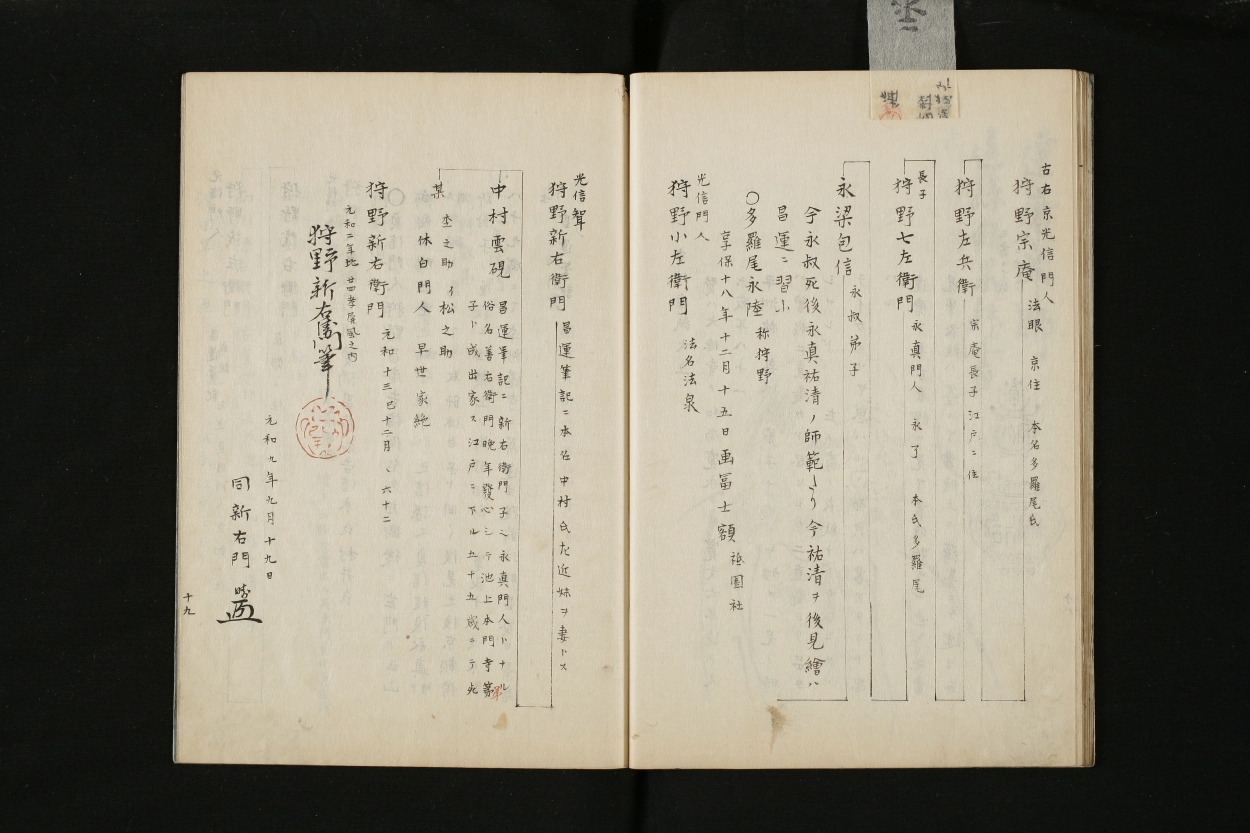 古右京光信門人
狩野宗庵 法眼 京住 本名多羅尾氏
狩野左兵衛 宗庵長子江戸ニ住
長子
狩野七左衛門 永真門人 永了 本氏多羅尾
永梁包信 永叔弟子
今永叔死後永真祐清ノ師範より今祐清ヲ後見繪ハ
昌運ニ習ふ
〇多羅尾永陸 称狩野
享保十八年十二月十五日画冨士額 祗園社
光信門人
狩野小左衛門 法名法泉
光信聟
狩野新右衛門 昌運筆記ニ本名中村氏左近妹ヲ妻トス
中村雲硯 昌運筆記ニ新右衛門子也永真門人トナル
俗名善右衛門晩年發心シテ池上本門寺
子ト成出家ス江戸ニ下ル五十五歳ニテ死
某 杢之助 イ松之助
休白門人 早世家絶
狩野新右衛門 元和十三巳十二月 六十二
元和二年 廿四孝屏風之内
狩野新右衛門筆
元和九年九月十九日
同新右門
十九